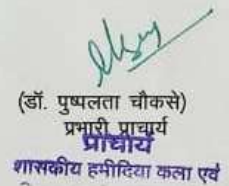 (डॉ. पुष्पलता चौकसे)
प्रभारी प्राचार्य
प्राचार्य
शासकीय हमीदिया कला एवं